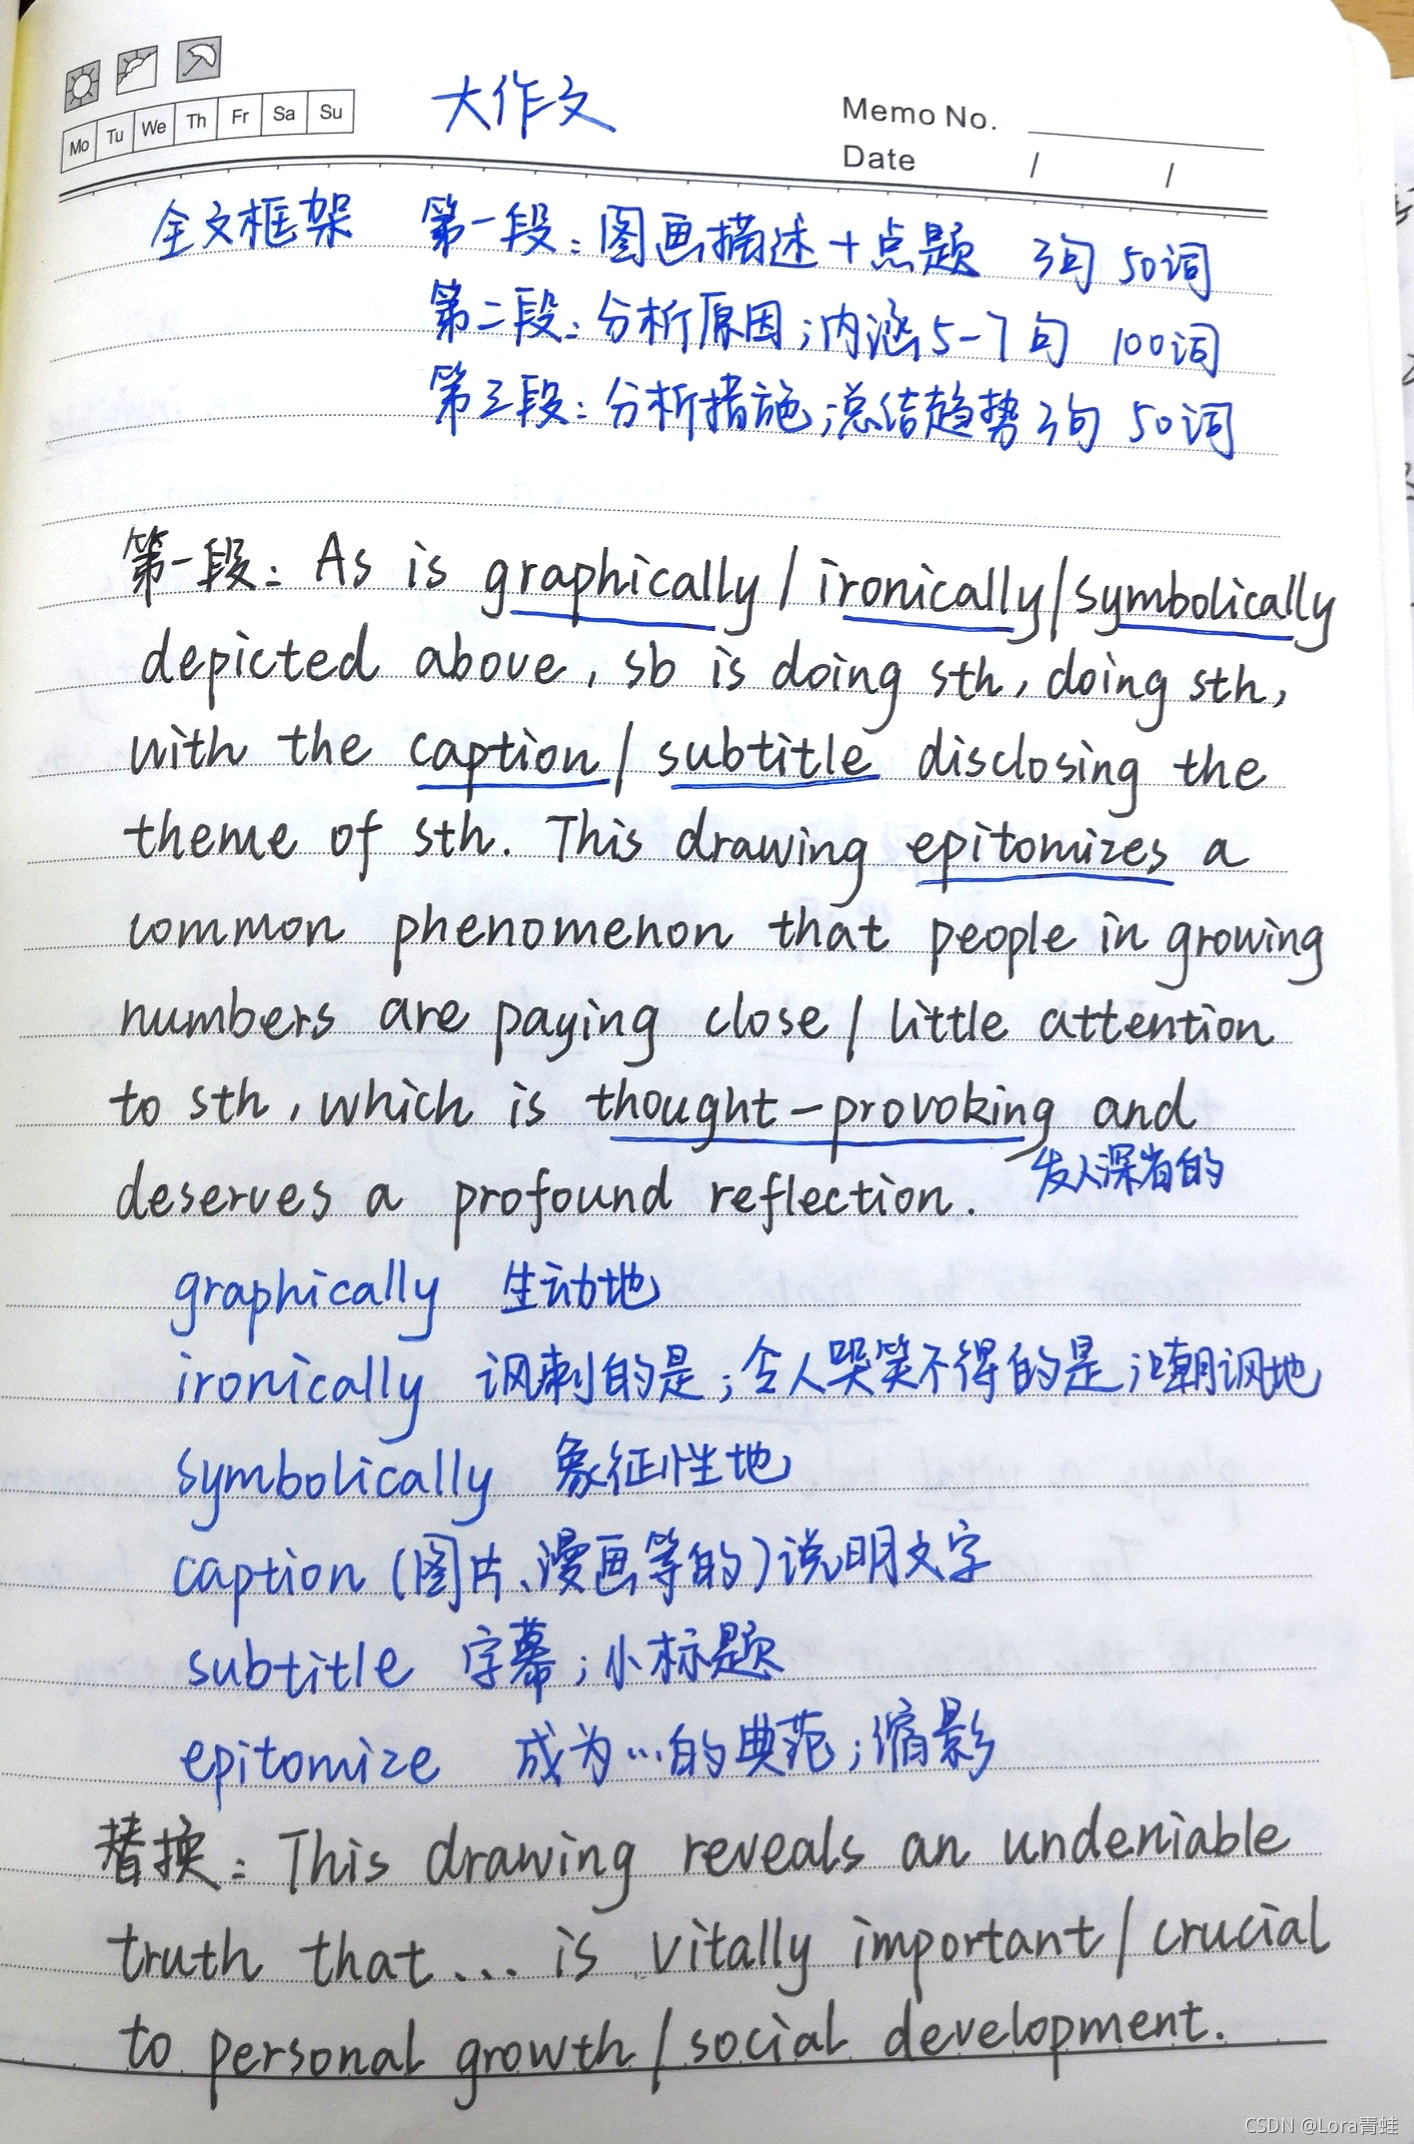 大作文
Memo No.
Mo Tu We Th Fr Sa Su
Date / /
全文框架 第一段：图画描述＋点题 3句 50词
第二段：分析原因；内涵5-7句 100词
第三段：分析措施；总结趋势 3句 50词
第一段：As is graphically/ironically/symbolically
depicted above, sb is doing sth, doing sth,
with the caption/subtitle disclosing the
theme of sth. This drawing epitomizes a
common phenomenon that people in growing
numbers are paying close/little attention
to sth, which is thought-provoking and
发人深省的
deserves a profound reflection.
graphically 生动地
ironically 讽刺的是；令人哭笑不得的是；嘲讽地
symbolically 象征性地
caption (图片、漫画等的)说明文字
subtitle 字幕；小标题
epitomize 成为…的典范；缩影
替换：This drawing reveals an undeniable
truth that... is vitally important/crucial
to personal growth/social development.
CSDN @Lora青蛙